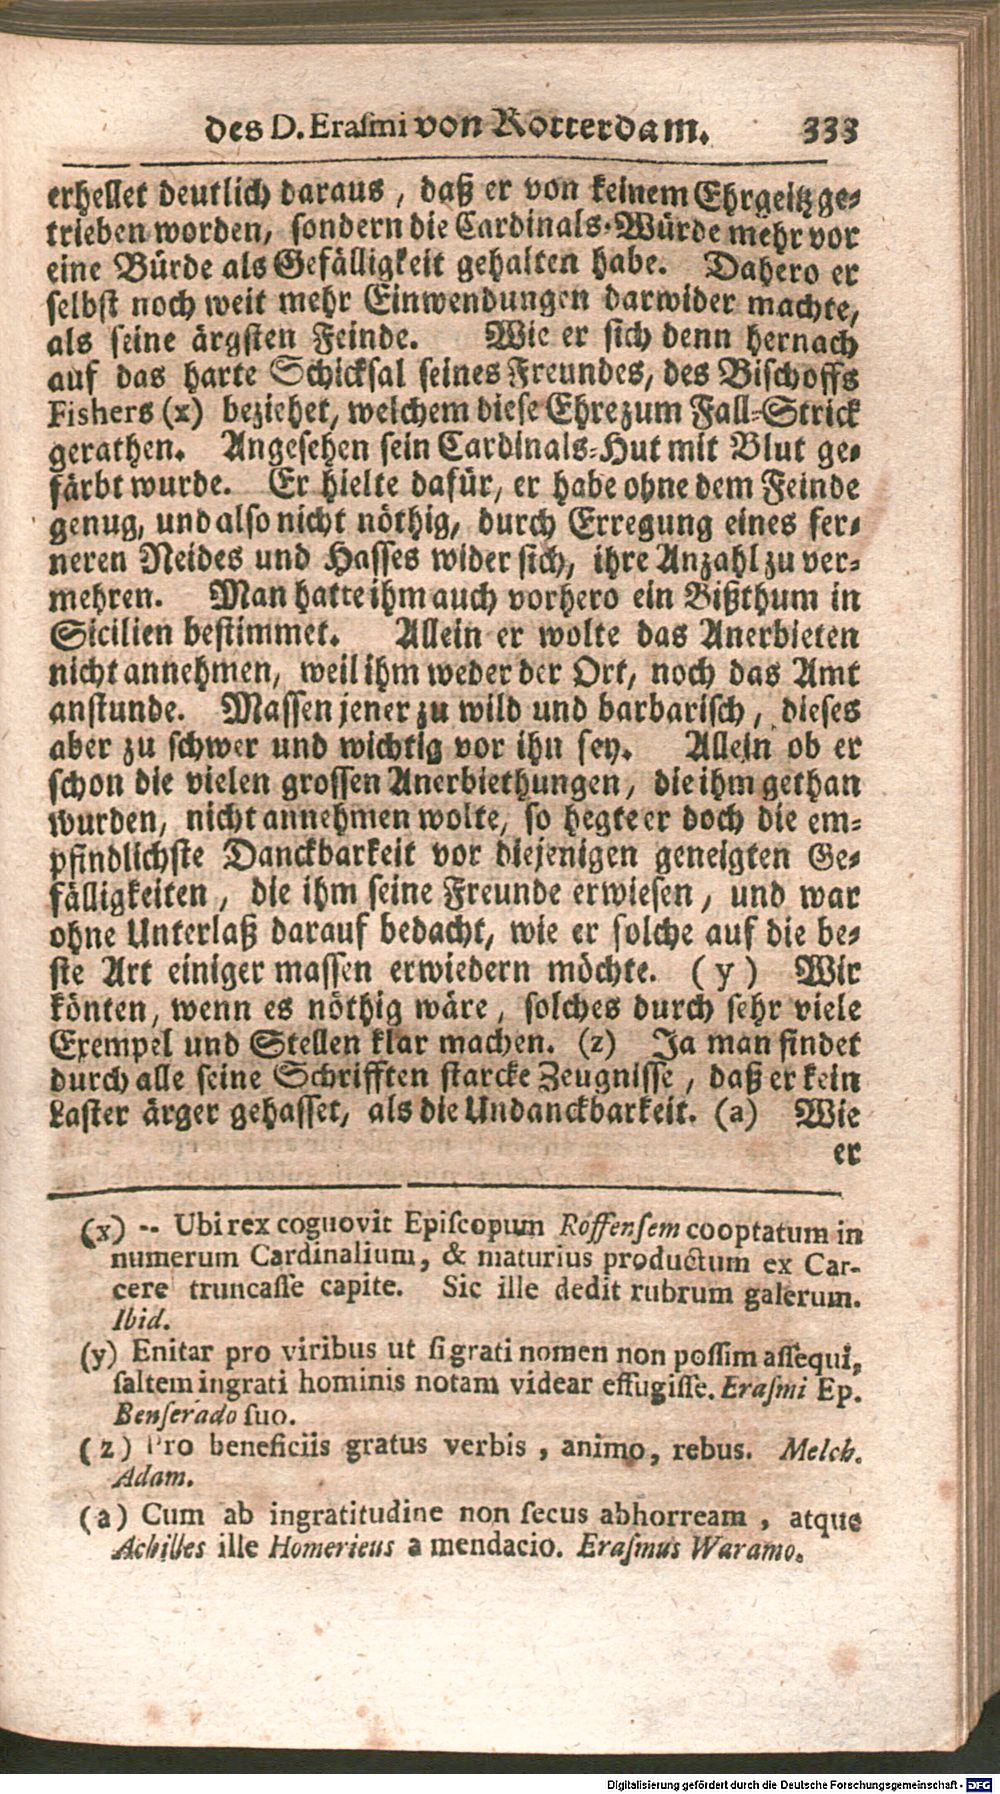 des D. Eraſmi von Rotterdam. 333
erhellet deutlich daraus, daß er von keinem Ehrgeitz ge-
trieben worden, ſondern die Cardinals-Würde mehr vor
eine Bürde als Gefälligkeit gehalten habe. Dahero er
ſelbſt noch weit mehr Einwendungen darwider machte,
als ſeine ärgſten Feinde. Wie er ſich denn hernach
auf das harte Schickſal ſeines Freundes, des Biſchoffs
Fishers (x) beziehet, welchem dieſe Ehre zum Fall-Strick
gerathen. Angeſehen ſein Cardinals-Hut mit Blut ge-
färbt wurde. Er hielte dafür, er habe ohne dem Feinde
genug, und alſo nicht nöthig, durch Erregung eines fer-
neren Neides und Haſſes wider ſich, ihre Anzahl zu ver-
mehren. Man hatte ihm auch vorhero ein Bißthum in
Sicilien beſtimmet. Allein er wolte das Anerbieten
nicht annehmen, weil ihm weder der Ort, noch das Amt
anſtunde. Maſſen jener zu wild und barbariſch, dieſes
aber zu ſchwer und wichtig vor ihn ſey. Allein ob er
ſchon die vielen groſſen Anerbiethungen, die ihm gethan
wurden, nicht annehmen wolte, ſo hegte er doch die em-
pfindlichſte Danckbarkeit vor diejenigen geneigten Ge-
fälligkeiten, die ihm ſeine Freunde erwieſen, und war
ohne Unterlaß darauf bedacht, wie er ſolche auf die be-
ſte Art einiger maſſen erwiedern möchte. (y) Wir
könten, wenn es nöthig wäre, ſolches durch ſehr viele
Exempel und Stellen klar machen. (z) Ja man findet
durch alle ſeine Schrifften ſtarcke Zeugniſſe, daß er kein
Laſter ärger gehaſſet, als die Undanckbarkeit. (a) Wie
er
(x) -- Ubi rex cognovit Epiſcopum Roffenſem cooptatum in
numerum Cardinalium, & maturius productum ex Car-
cere truncaſſe capite. Sic ille dedit rubrum galerum.
Ibid.
(y) Enitar pro viribus ut ſi grati nomen non poſſim aſſequi,
ſaltem ingrati hominis notam videar effugiſſe. Eraſmi Ep.
Benſerado ſuo.
(z) Pro beneficiis gratus verbis, animo, rebus. Melch.
Adam.
(a) Cum ab ingratitudine non ſecus abhorream, atque
Achilles ille Homericus a mendacio. Eraſmus Waramo.
Digitalisierung gefördert durch die Deutsche Forschungsgemeinschaft - DFG